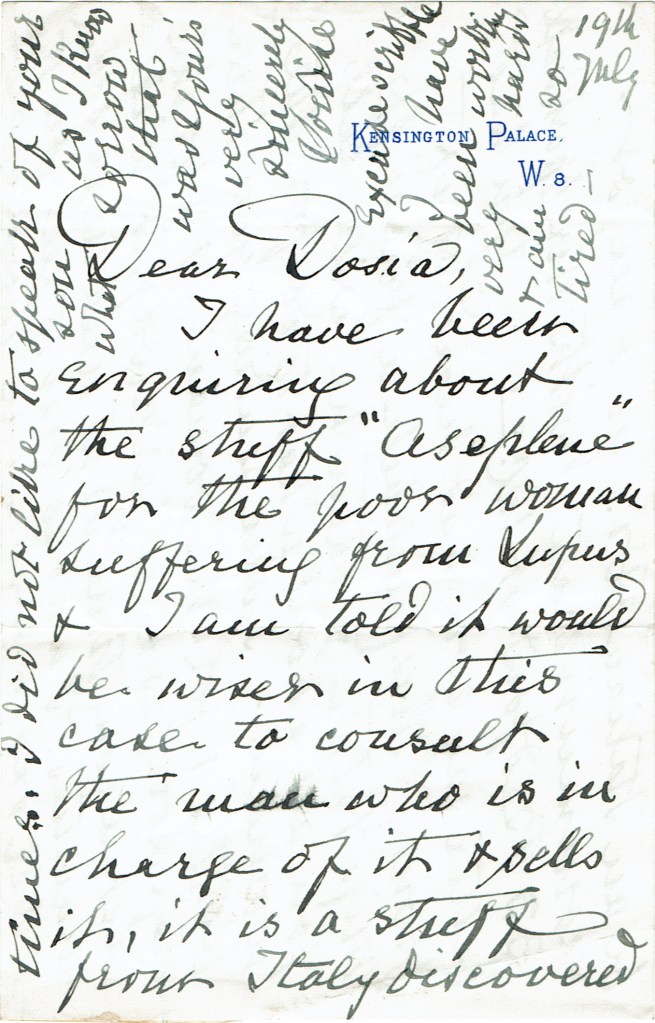 19th
July
KENSINGTON PALACE.
W. 8.
Dear Dosia,
I have been
enquiring about
the stuff "Aseplene"
for the poor woman
suffering from Lupus
& I am told it would
be wiser in this
case to consult
the man who is in
charge of it & sells
it, it is a stuff
from Italy discovered
times. I did not like to speak of your
son as I know
what sorrow
that
was Yours
very
sincerely
Louise
Excuse scribble
I have
been working
very hard
& am so
tired -